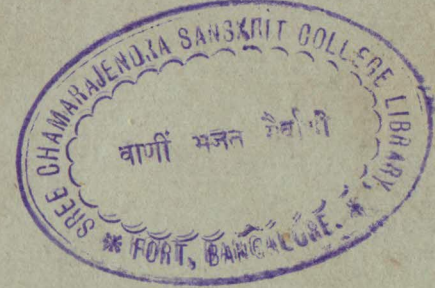 SREE CHAMARAJENDRA SANSKRIT COLLEGE LIBRARY,
वाणीं भजत गैर्वाणीं
* FORT, BANGALORE. *